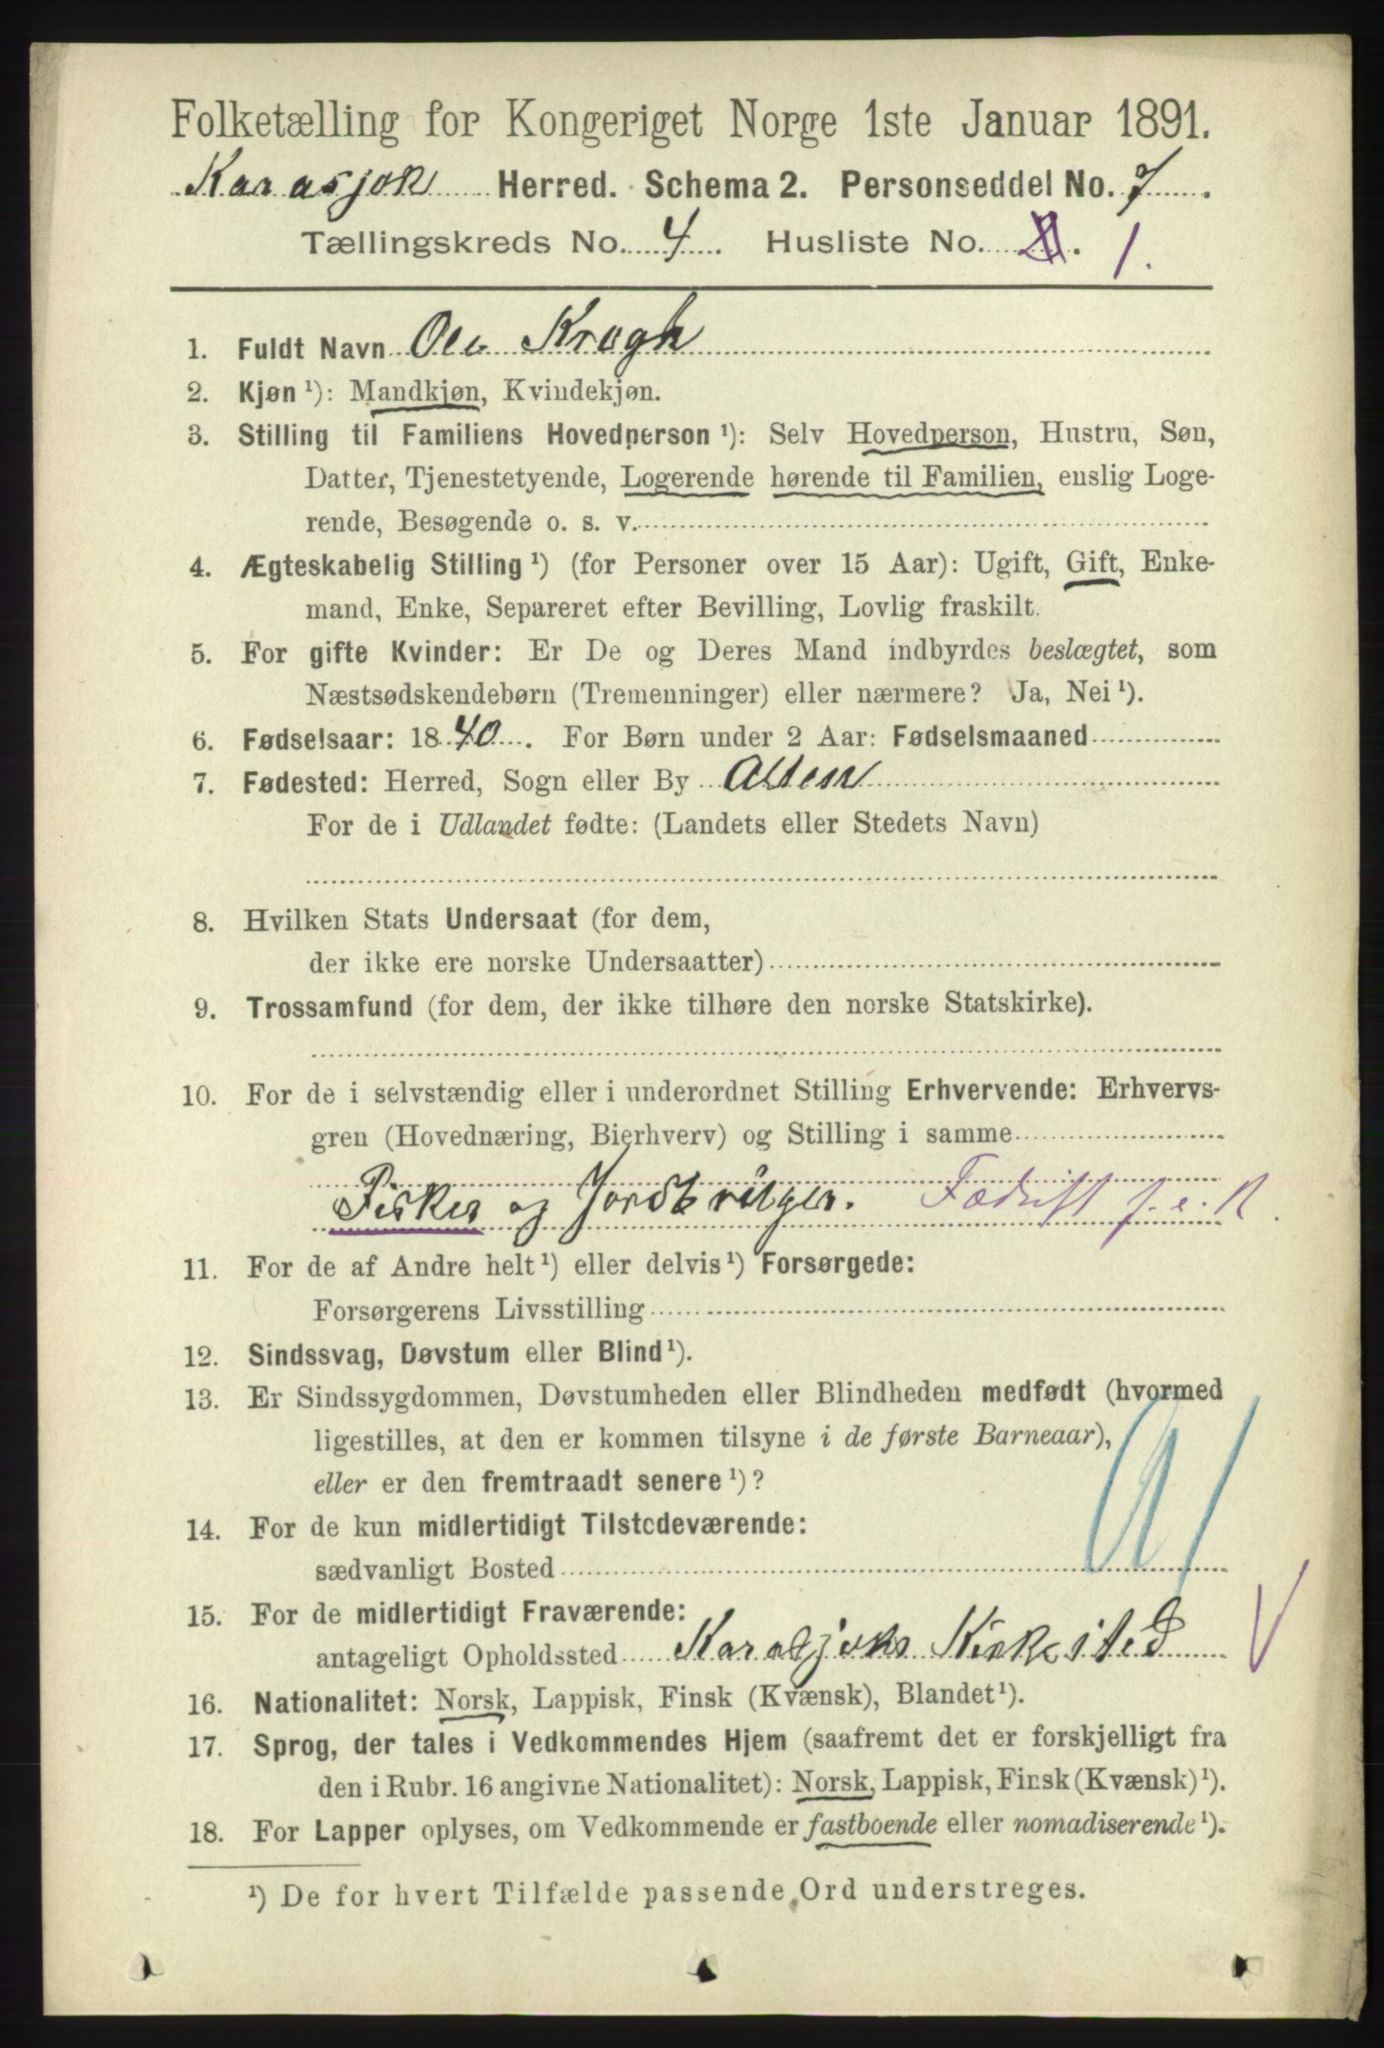 Folketælling for Kongeriget Norge 1ste Januar 1891.
Karasjok Herred. Schema 2. Personseddel No. 7.
Tællingskreds No. 4. Husliste No. 1.
1. Fuldt Navn Ole Krogh
2. Kjøn ¹): Mandkjøn, Kvindekjøn.
3. Stilling til Familiens Hovedperson ¹): Selv Hovedperson, Hustru, Søn,
Datter, Tjenestetyende, Logerende hørende til Familien, enslig Loge-
rende, Besøgende o. s. v.
4. Ægteskabelig Stilling ¹) (for Personer over 15 Aar): Ugift, Gift, Enke-
mand, Enke, Separeret efter Bevilling, Lovlig fraskilt.
5. For gifte Kvinder: Er De og Deres Mand indbyrdes beslægtet, som
Næstsødskendebørn (Tremenninger) eller nærmere? Ja, Nei ¹).
6. Fødselsaar: 1840. For Børn under 2 Aar: Fødselsmaaned
7. Fødested: Herred, Sogn eller By Alten
For de i Udlandet fødte: (Landets eller Stedets Navn)
8. Hvilken Stats Undersaat (for dem,
der ikke ere norske Undersaatter)
9. Trossamfund (for dem, der ikke tilhøre den norske Statskirke).
10. For de i selvstændig eller i underordnet Stilling Erhvervende: Erhvervs-
gren (Hovednæring, Bierhverv) og Stilling i samme
Fisker og Jordbruger. Fædrift f. e. R.
11. For de af Andre helt ¹) eller delvis ¹) Forsørgede:
Forsørgerens Livsstilling
12. Sindssvag, Døvstum eller Blind ¹).
13. Er Sindssygdommen, Døvstumheden eller Blindheden medfødt (hvormed
ligestilles, at den er kommen tilsyne i de første Barneaar),
eller er den fremtraadt senere ¹)?
14. For de kun midlertidigt Tilstedeværende:
sædvanligt Bosted
15. For de midlertidigt Fraværende:
antageligt Opholdssted Karasjoks Kirkested
16. Nationalitet: Norsk, Lappisk, Finsk (Kvænsk), Blandet ¹).
17. Sprog, der tales i Vedkommendes Hjem (saafremt det er forskjelligt fra
den i Rubr. 16 angivne Nationalitet): Norsk, Lappisk, Finsk (Kvænsk) ¹).
18. For Lapper oplyses, om Vedkommende er fastboende eller nomadiserende ¹).
¹) De for hvert Tilfælde passende Ord understreges.